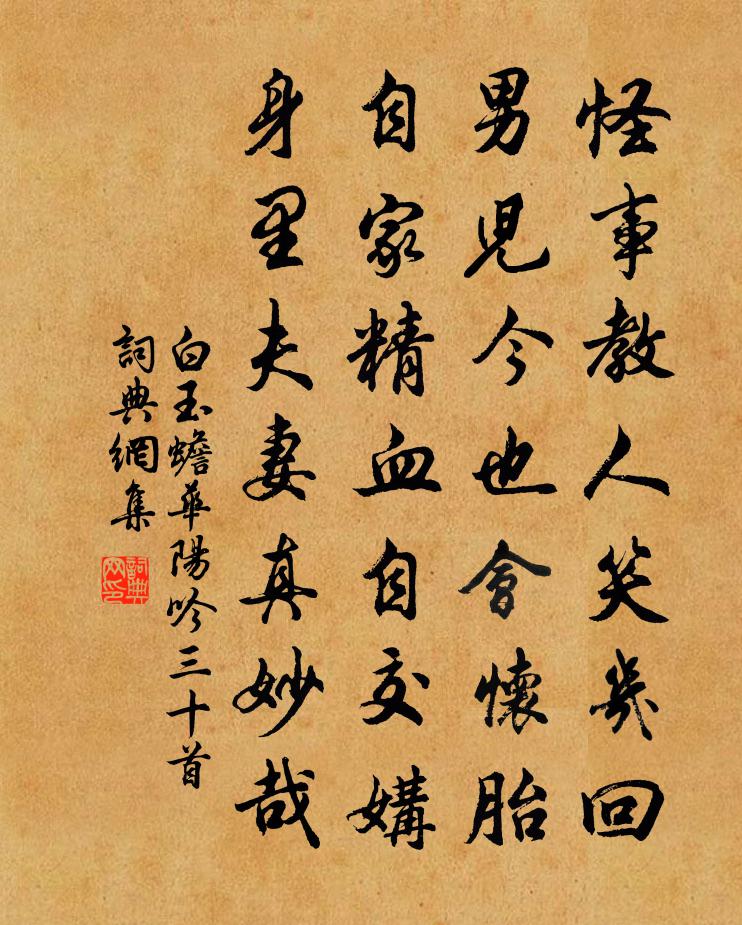 怪事教人笑幾回
男兒今也會懷胎
自家精血自交媾
身里夫妻真妙哉
白玉蟾華陽吟三十首
詞典網集
詞典
网印